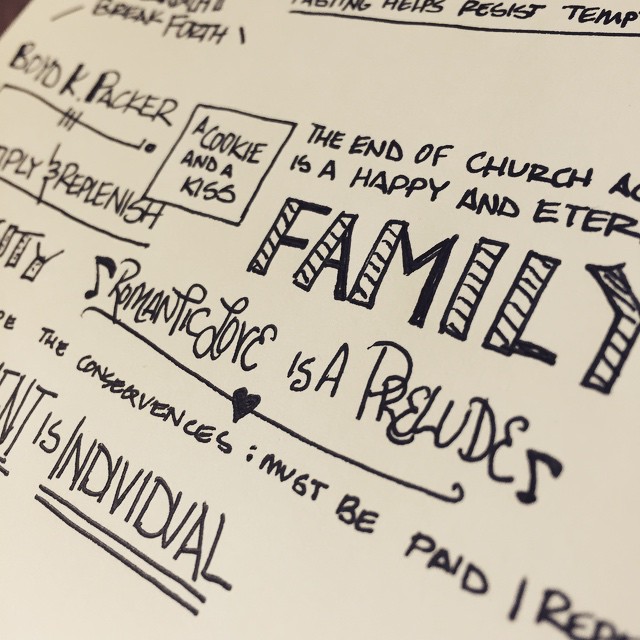 BREAK FORTH
FASTING HELPS RESIST
BOYD K. PACKER
& REPLENISH
A
COOKIE
AND A
KISS
THE END OF CHURCH
IS A HAPPY AND
FAMILY
ROMANTIC LOVE IS A PRELUDE
THE CONSEQUENCES : MUST BE PAID
IS INDIVIDUAL